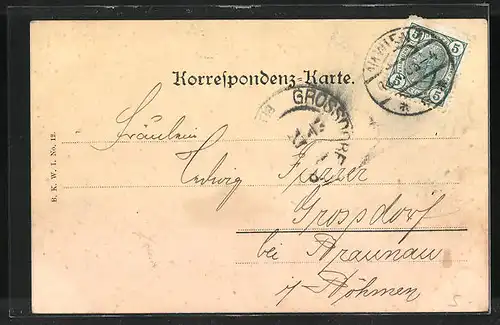 Korrespondenz-Karte.
5 5
5 5
GROSSDORF
Fräulein
Hedwig
Grossdorf
bei Braunau
i/ Böhmen
B. K. W. I. No. 12.